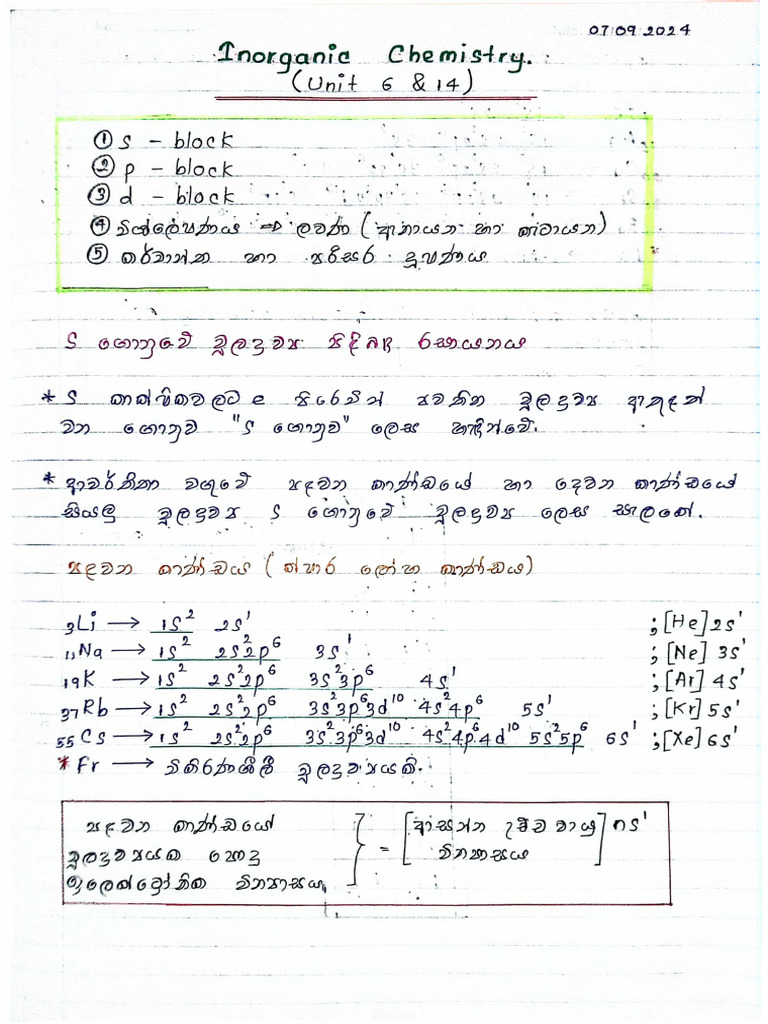 07 09 2024
Inorganic Chemistry.
(Unit 6 & 14)
① s - block
② p - block
③ d - block
④ විශ්ලේෂණය ⇒ ලවණ (ඇනායන හා කැටායන)
⑤ කර්මාන්ත හා පරිසර දූෂණය
S ගොනුවේ මූලද්‍රව්‍ය පිළිබඳ රසායනය
* S කාක්ෂිකවලට e පිරෙමින් පවතින මූලද්‍රව්‍ය ඇතුළත්
වන ගොනුව "S ගොනුව" ලෙස හැඳින්වේ.
* ආවර්තිතා වගුවේ පළවන කාණ්ඩයේ හා දෙවන කාණ්ඩයේ
සියලු මූලද්‍රව්‍ය S ගොනුවේ මූලද්‍රව්‍ය ලෙස සැලකේ.
පළවන කාණ්ඩය (ක්ෂාර ලෝහ කාණ්ඩය)
₃Li → 1s² 2s¹ ; [He] 2s¹
₁₁Na → 1s² 2s²2p⁶ 3s¹ ; [Ne] 3s¹
₁₉K → 1s² 2s²2p⁶ 3s²3p⁶ 4s¹ ; [Ar] 4s¹
₃₇Rb → 1s² 2s²2p⁶ 3s²3p⁶3d¹⁰ 4s²4p⁶ 5s¹ ; [Kr] 5s¹
₅₅Cs → 1s² 2s²2p⁶ 3s²3p⁶3d¹⁰ 4s²4p⁶4d¹⁰ 5s²5p⁶ 6s¹ ; [Xe] 6s¹
* Fr → විකිරණශීලී මූලද්‍රව්‍යයකි.
පළවන කාණ්ඩයේ
මූලද්‍රව්‍යයක පොදු
ඉලෙක්ට්‍රෝනික වින්‍යාසය } = [ආසන්න උච්ච වායු
වින්‍යාසය] ns¹